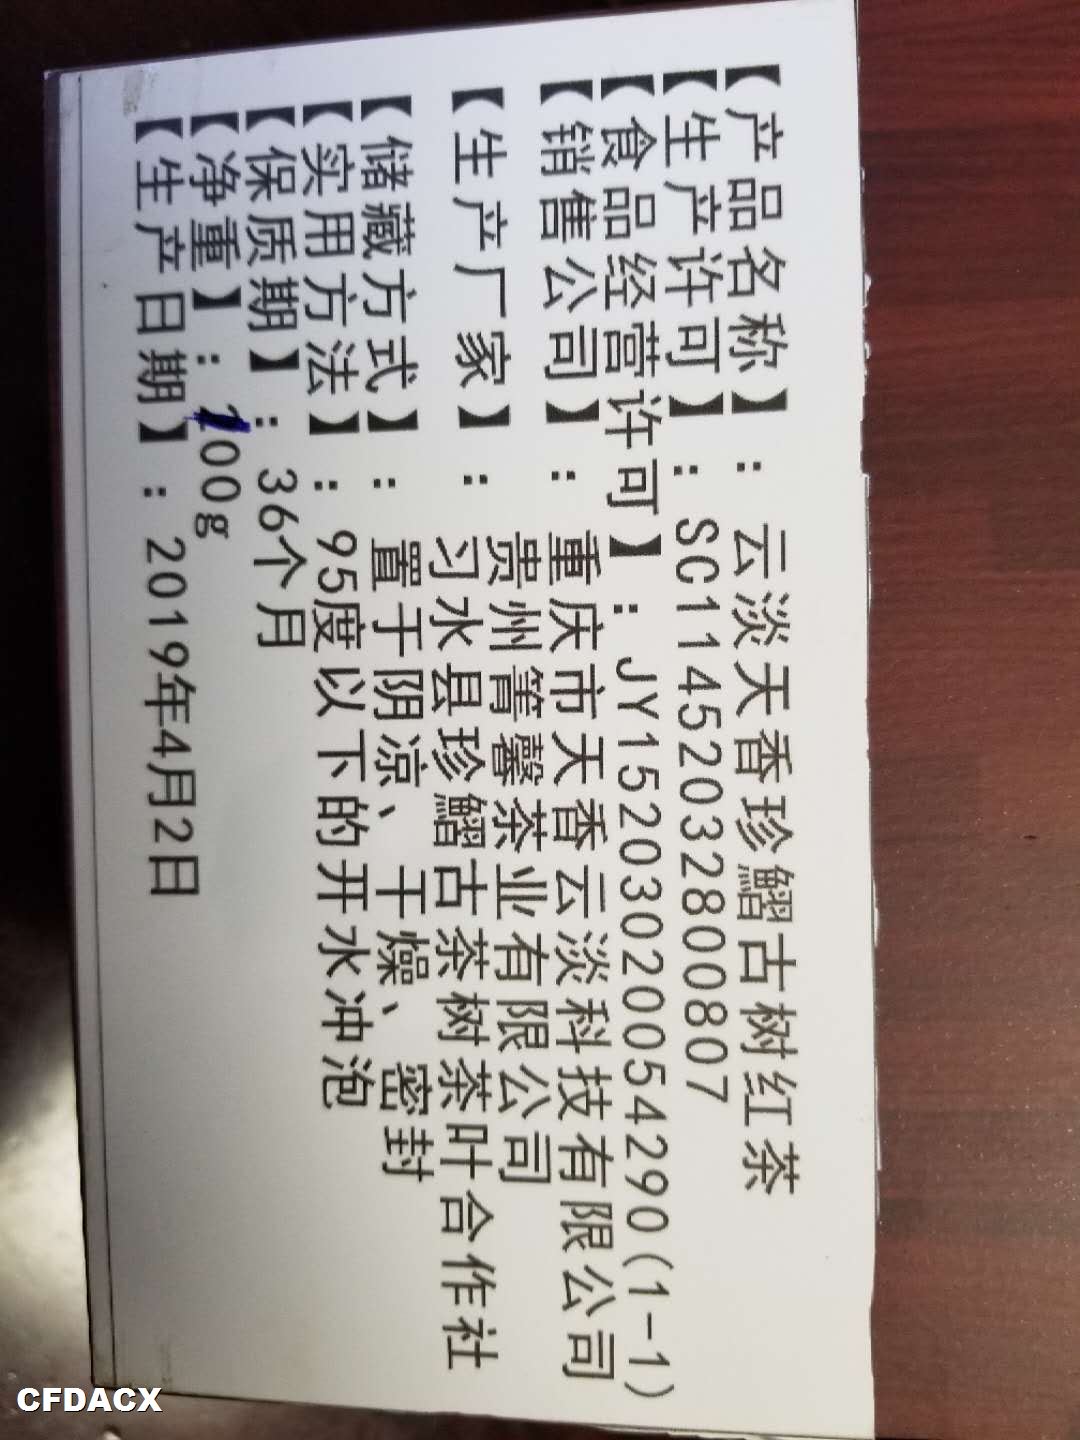 【产品名称】：云淡天香珍鰼古树红茶
【生产许可】：SC11452032800807
【食品经营许可】：JY15203020054290(1-1)
【销售公司】：重庆市天香云淡科技有限公司
【生产厂家】：贵州箐馨茶业有限公司
习水县珍鰼古茶树茶叶合作社
【储藏方式】：置于阴凉、干燥、密封
【实用方法】：95度以下的开水冲泡
【保质期】：36个月
【净重】：
【生产日期】：2019年4月2日
CFDACX